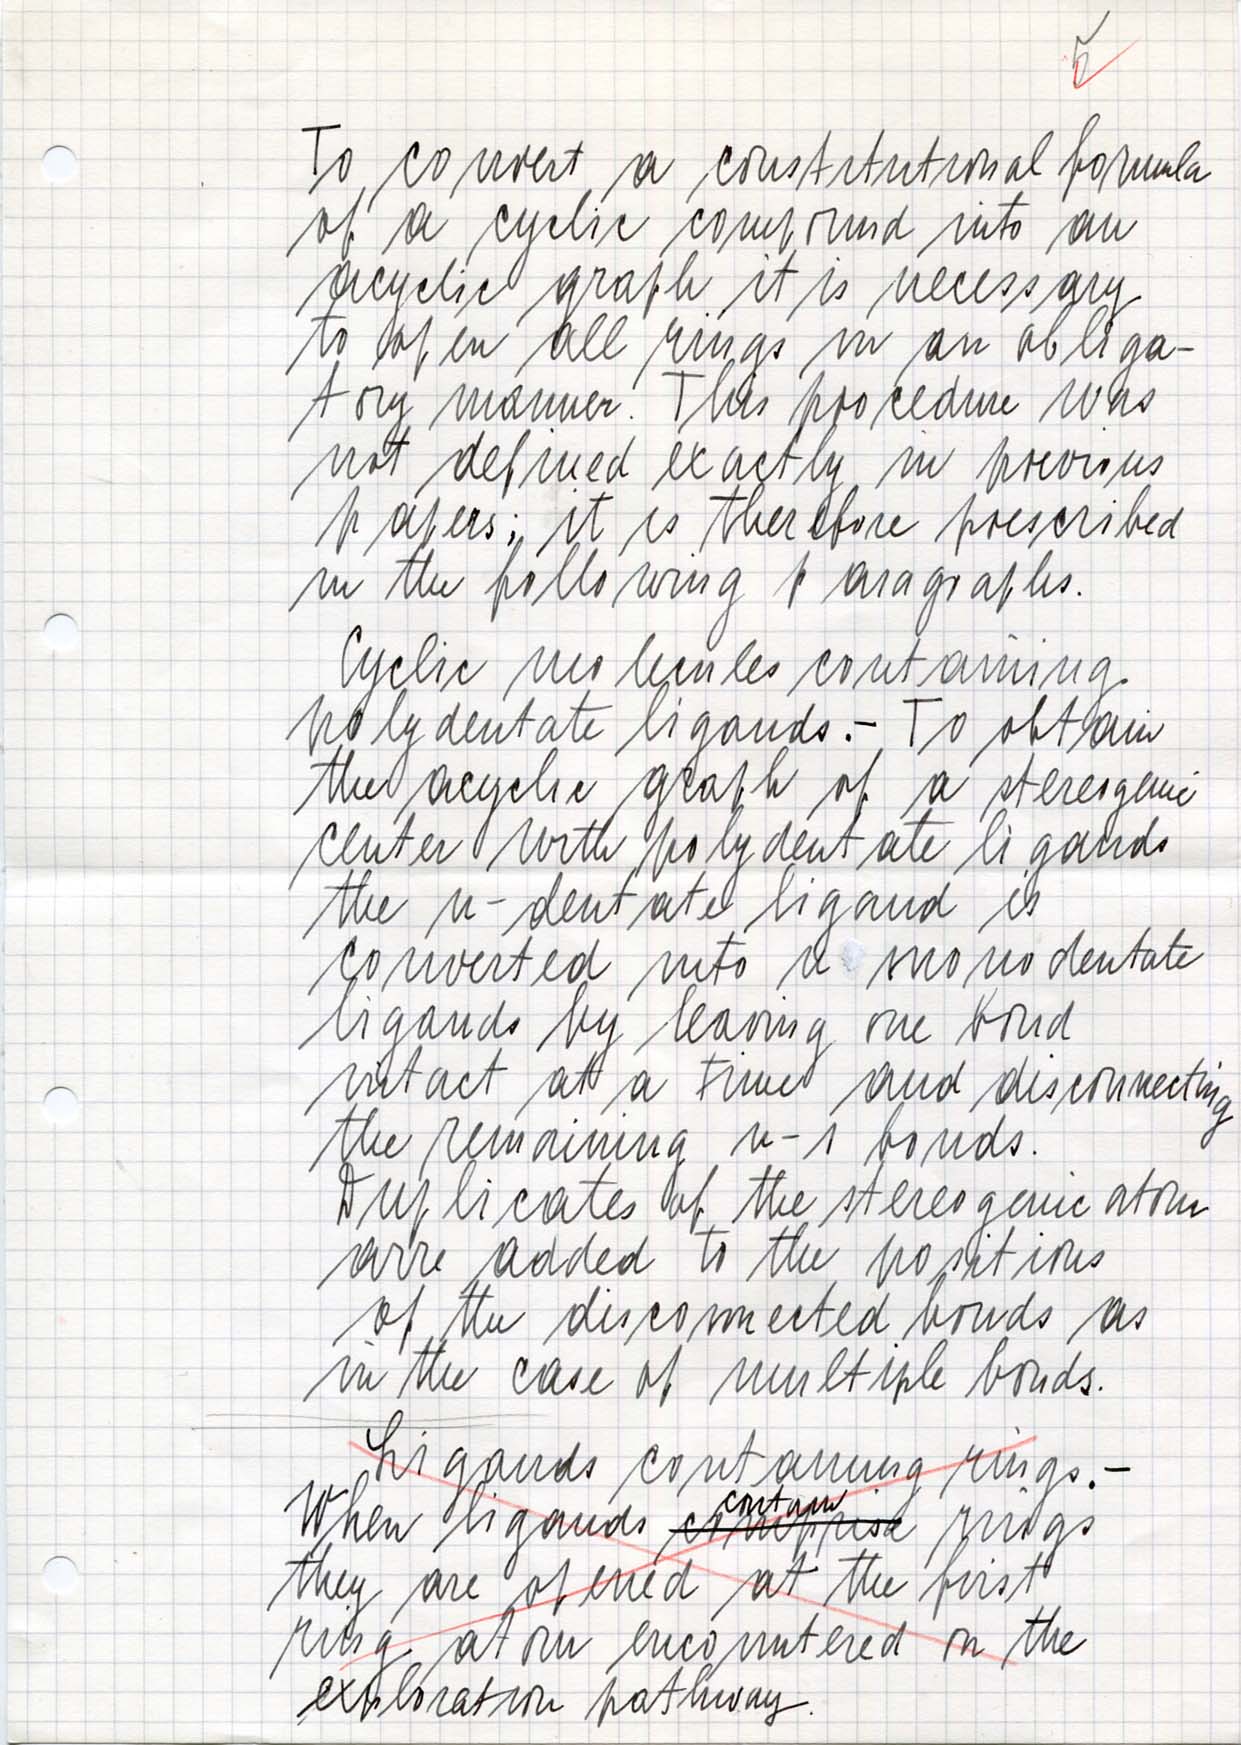 5
To convert a constitutional formula
of a cyclic compound into an
acyclic graph it is necessary
to open all rings in an obliga-
tory manner. This procedure was
not defined exactly in previous
papers; it is therefore prescribed
in the following paragraphs.
Cyclic molecules containing
polydentate ligands.– To obtain
the acyclic graph of a stereogenic
center with polydentate ligands
the n-dentate ligand is
converted into n monodentate
ligands by leaving one bond
intact at a time and disconnecting
the remaining n-1 bonds.
Duplicates of the stereogenic atom
arre added to the positions
of the disconnected bonds as
in the case of multiple bonds.
Ligands containing rings.–
contain
When ligands comprise rings
they are opened at the first
ring atom encountered on the
exploration pathway.